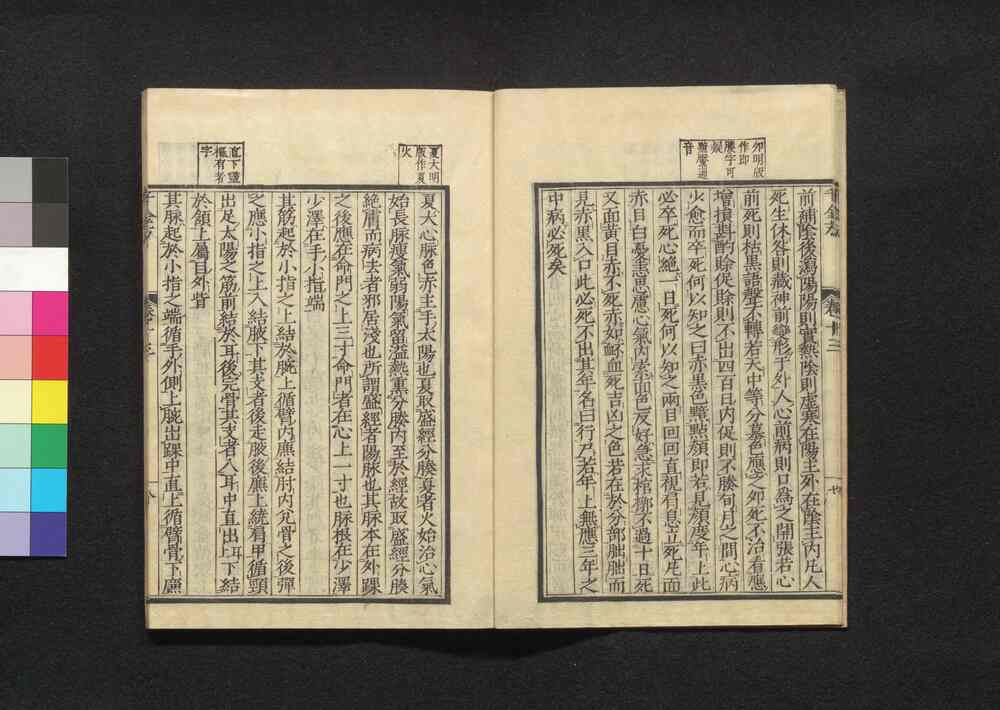 夘明版
作即
賸字可
疑
黯聲通
音
前補陰後瀉陽陽則實熱陰則虛寒在陽主外在陰主内凡人
死生休咎則藏神前變形于外人心前病則口爲之開張若心
前死則枯黑語聲不轉若天中等分暮色應之夘死不治看應
增損斟酌賒促賒則不出四百日内促則不勝旬月之間心病
少愈而卒死何以知之曰赤黑色黯點顔即若見顔度年上此
必卒死心絶一日死何以知之兩目回回直視肩息立死凡面
赤目白憂恚思慮心氣内索面色反好急求棺槨不過十日死
又面黄目赤不死赤如衃血死吉凶之色若在於分部朏朏而
見赤黑入口此必死不出其年名曰行尸若年上無應三年之
中病必死矣
夏大明
版作夏
火
夏大心脉色赤主手太陽也夏取盛經分腠夏者火始治心氣
始長脉瘦氣弱陽氣留溢熱熏分腠内至於經故取盛經分腠
絶膚而病去者邪居淺也所謂盛經者陽脉也其脉本在外踝
之後應在命門之上三寸命門者在心上一寸也脉根在少澤
少澤在手小指端
其筋起於小指之上結於腕上循臂内廉結肘内兊骨之後彈
之應小指之上入結腋下其支者後走腋後廉上繞肩甲循頸
出足太陽之筋前結於耳後完骨其支者入耳中直出耳上下結
於頷上屬目外眥
其脉起於小指之端循手外側上腕出踝中直上循臂骨下廉
直下竇
樞有者
字